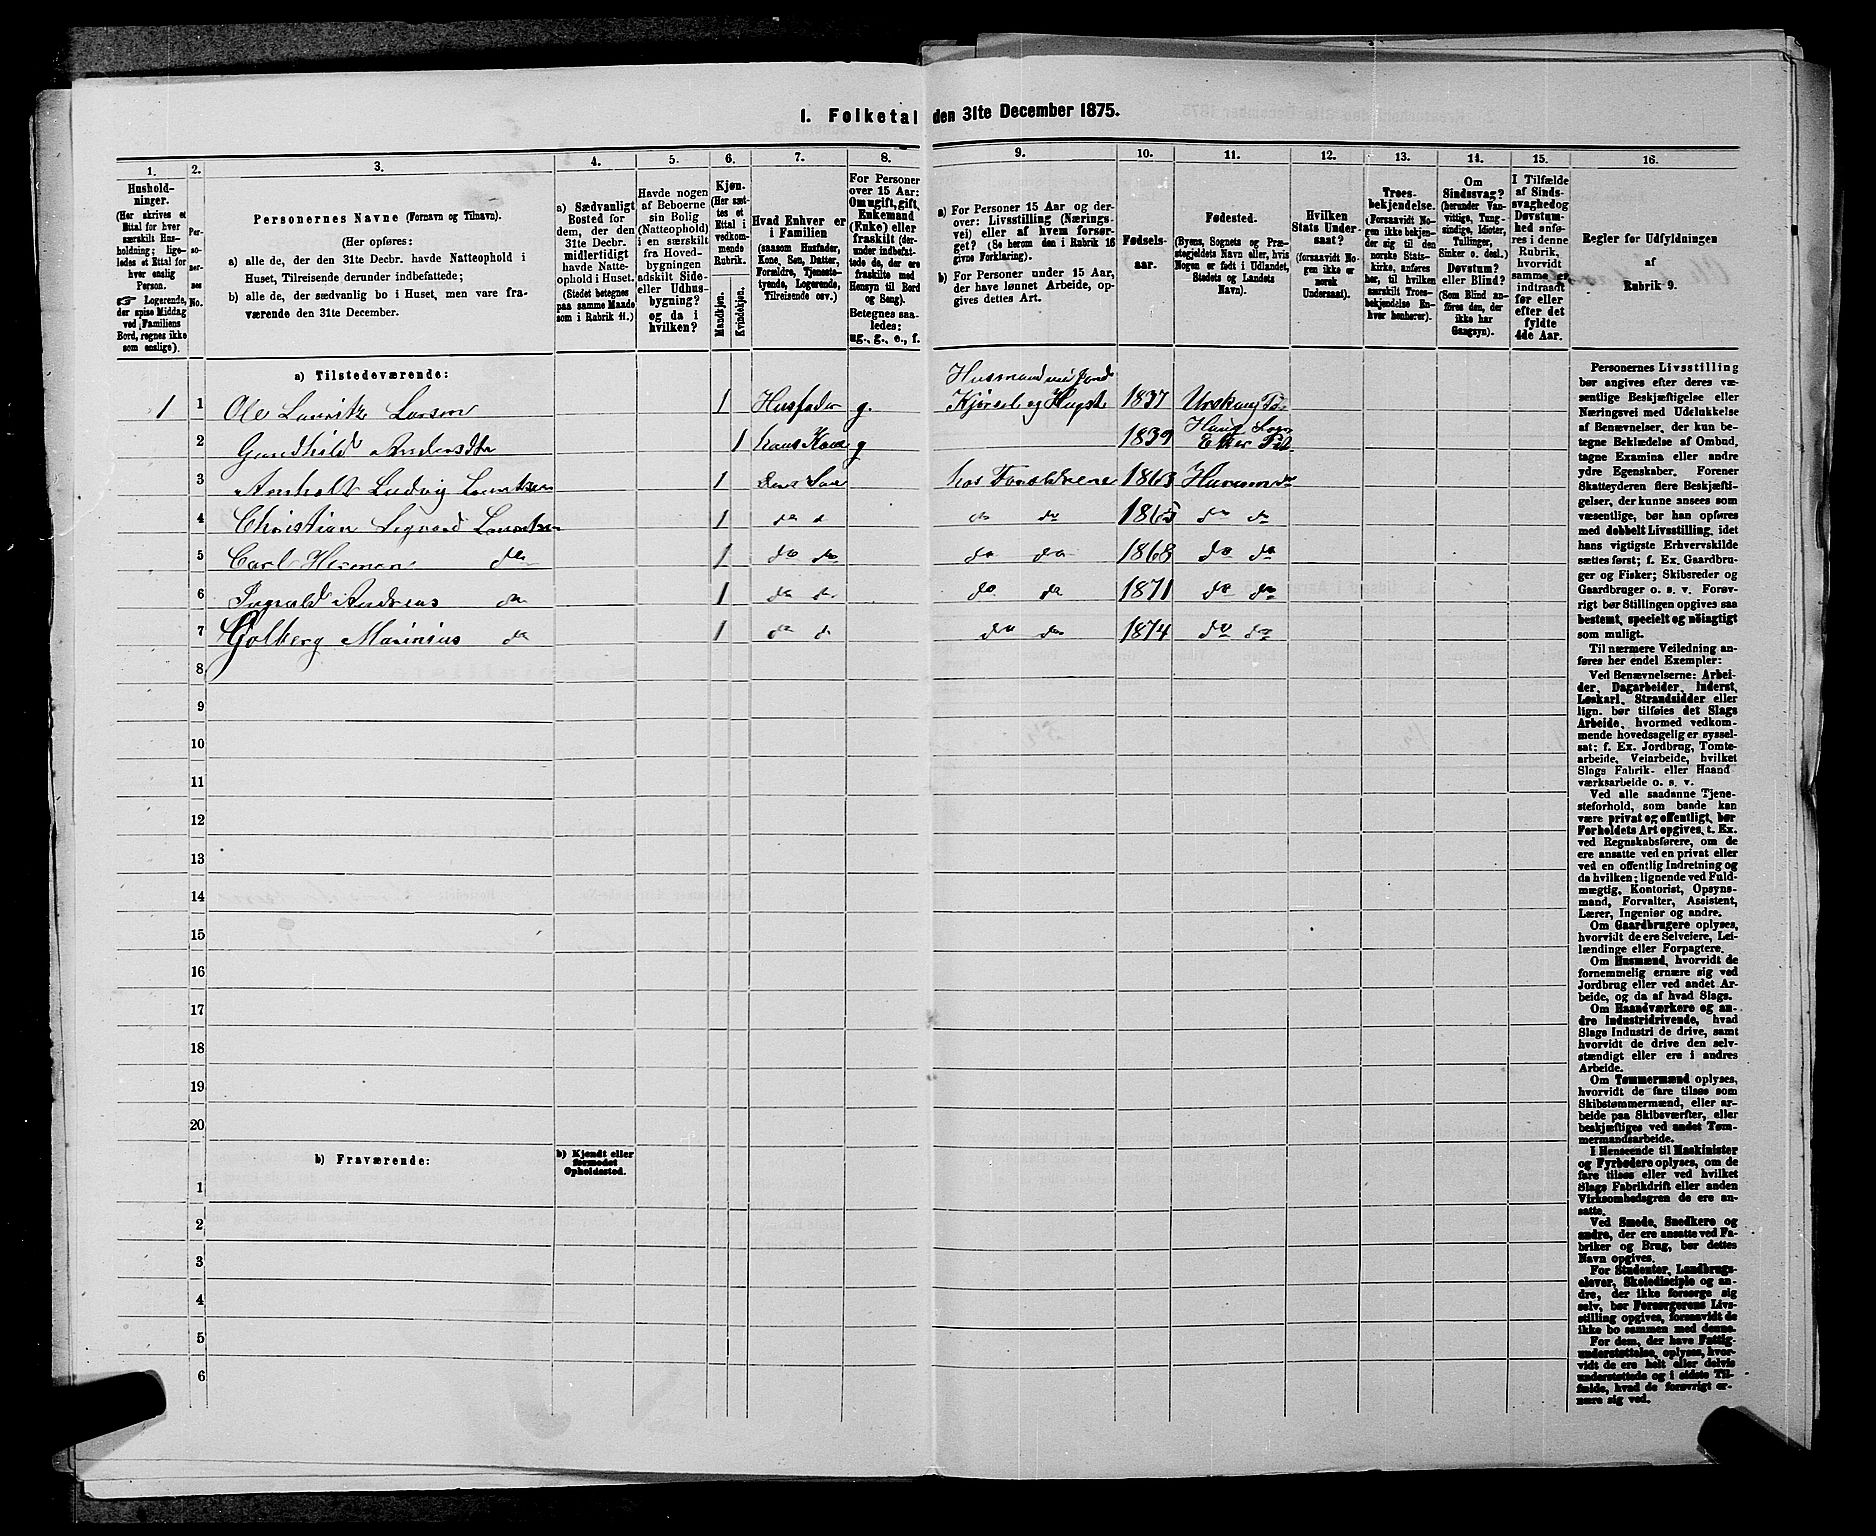 1. Folketal den 31te December 1875.
1.
Hushold-
ninger.
(Her skrives et
Ettal for hver
særskilt Hus-
holdning; lige-
ledes et Ettal for
hver enslig
Person.
☞ Logerende,
der spise Middag
ved Familiens
Bord, regnes ikke
som enslige).
2.
Per-
so-
ner-
nes
No.
3.
Personernes Navne (Fornavn og Tilnavn).
(Her opføres:
a) alle de, der den 31te Decbr. havde Natteophold i
Huset, Tilreisende derunder indbefattede;
b) alle de, der sædvanlig bo i Huset, men vare fra-
værende den 31te December.
4.
a) Sædvanligt
Bosted for
dem, der den
31te Decbr.
midlertidigt
havde Natte-
ophold i Huset.
(Stedet betegnes
paa samme Maade
som i Rubrik 11.)
5.
Havde nogen
af Beboerne
sin Bolig
(Natteophold)
i en særskilt
fra Hoved-
bygningen
adskilt Side-
eller Udhus-
bygning?
og da i
hvilken?
6.
Kjøn.
(Her sæt-
tes et
Ettal i
vedkom-
mende
Rubrik.
Mandkjøn.
Kvindekjøn.
7.
Hvad Enhver er
i Familien
(saasom Husfader,
Kone, Søn, Datter,
Forældre, Tjeneste-
tyende, Logerende,
Tilreisende osv.)
8.
For Personer
over 15 Aar:
Om ugift, gift,
Enkemand
(Enke) eller
fraskilt (der-
under indbefat-
tede de, der ere
fraskilte med
Hensyn til Bord
og Seng).
Betegnes saa-
ledes:
ug., g., e., f.
9.
a) For Personer 15 Aar og der-
over: Livsstilling (Nærings-
vei) eller af hvem forsør-
get? (Se herom den i Rubrik 16
givne Forklaring).
b) For Personer under 15 Aar,
der have lønnet Arbeide, op-
gives dettes Art.
10.
Fødsels-
aar.
11.
Fødested.
(Byens, Sognets og Præ-
stegjeldets Navn eller, hvis
Nogen er født i Udlandet,
Stedets og Landets
Navn).
12.
Hvilken
Stats Under-
saat?
(forsaavidt No-
gen ikke er
norsk
Undersaat).
13.
Troes-
bekjendelse.
(Forsaavidt No-
gen ikke bekjen-
der sig til den
norske Stats-
kirke, anføres
her, til hvilken
særskilt Troes-
bekjendelse En-
hver henhører).
14.
Om
Sindssvag?
(herunder Van-
vittige, Tung-
sindige, Idioter,
Tullinger,
Sinker o. desl.)
Døvstum?
eller Blind?
(Som Blind an-
føres den, der
ikke har
Gangsyn).
15.
I Tilfælde
af Sinds-
svaghed og
Døvstum-
hed anfø-
res i denne
Rubrik,
hvorvidt
samme er
indtraadt
før eller
efter det
fyldte
4de Aar.
16.
Regler for Udfyldningen
af
Rubrik 9.
a) Tilstedeværende:
Husmand med Jord
1 1 Ole Lauritz Larsen 1 Husfader g. Kjørsel og Hugst 1837 Urskoug
2 Gundhild Andersdtr 1 hans Kone g 1839
3 Amholt Ludvig Lauritzen 1 Deres Søn hos Forældrene 1863
4 Christian Sigvard Lauritzen 1 do do do do 1865 do do
5 Carl Herman do 1 do do do do 1868 do do
6 Ingvald Andreas do 1 do do do do 1871 do do
7 Golberg Marinius do 1 do do do do 1874 do do
8
9
10
11
12
13
14
15
16
17
18
19
20
b) Fraværende:
b) Kjendt eller
formodet
Opholdssted.
1
2
3
4
5
6
Personernes Livsstilling
bør angives efter deres væ-
sentlige Beskjæftigelse eller
Næringsvei med Udelukkelse
af Benævnelser, der kun be-
tegne Beklædelse af Ombud,
tagne Examina eller andre
ydre Egenskaber. Forener
Skatteyderen flere Beskjæfti-
gelser, der kunne ansees som
væsentlige, bør han opføres
med dobbelt Livsstilling, idet
hans vigtigste Erhvervskilde
sættes først; f. Ex. Gaardbru-
ger og Fisker; Skibsreder og
Gaardbruger o. s. v. Forøv-
rigt bør Stillingen opgives saa
bestemt, specielt og nøiagtigt
som muligt.
Til nærmere Veiledning an-
føres her endel Exempler:
Ved Benævnelserne: Arbei-
der, Dagarbeider, Inderst,
Løskarl, Strandsidder eller
lign. bør tilføies det Slags
Arbeide, hvormed vedkom-
mende hovedsagelig er syssel-
sat; f. Ex. Jordbrug, Tomte-
arbeide, Veiarbeide, hvilket
Slags Fabrik- eller Haand
værksarbeide o. s. v.
Ved alle saadanne Tjene-
steforhold, som baade kan
være privat og offentligt, bør
Forholdets Art opgives, t. Ex.
ved Regnskabsførere, om de
ere ansatte ved en privat eller
ved en offentlig Indretning og
da hvilken; lignende ved Fuld-
mægtig, Kontorist, Opsyns-
mand, Forvalter, Assistent,
Lærer, Ingeniør og andre.
Om Gaardbrugere oplyses,
hvorvidt de ere Selveiere, Lei-
lændinge eller Forpagtere.
Om Husmænd, hvorvidt de
fornemmelig ernære sig ved
Jordbrug eller ved andet Ar-
beide, og da af hvad Slags.
Om Haandværkere og an-
dre Industridrivende, hvad
Slags Industri de drive, samt
hvorvidt de drive den selv-
stændigt eller ere i andres
Arbeide.
Om Tømmermænd oplyses,
hvorvidt de fare tilsøs som
Skibstømmermænd, eller ar-
beide paa Skibsværfter, eller
beskjæftiges ved andet Tøm-
mermandsarbeide.
I Henseende til Maskinister
og Fyrbødere oplyses, om de
fare tilsøs eller ved hvilket
Slags Fabrikdrift eller anden
Virksomhedsgren de ere an-
satte.
Ved Smede, Snedkere og
andre, der ere ansatte ved Fa-
briker og Brug, bør dettes
Navn opgives.
For Studenter, Landbrugs-
elever, Skoledisciple og an-
dre, der ikke forsørge sig
selv, bør Forsørgerens Livs-
stilling opgives, forsaavidt de
ikke bo sammen med denne.
For dem, der have Fattig-
understøttelse, oplyses, hvor-
vidt de ere helt eller delvis
understøttede og i sidste Til-
fælde, hvad de forøvrigt er-
nære sig ved.